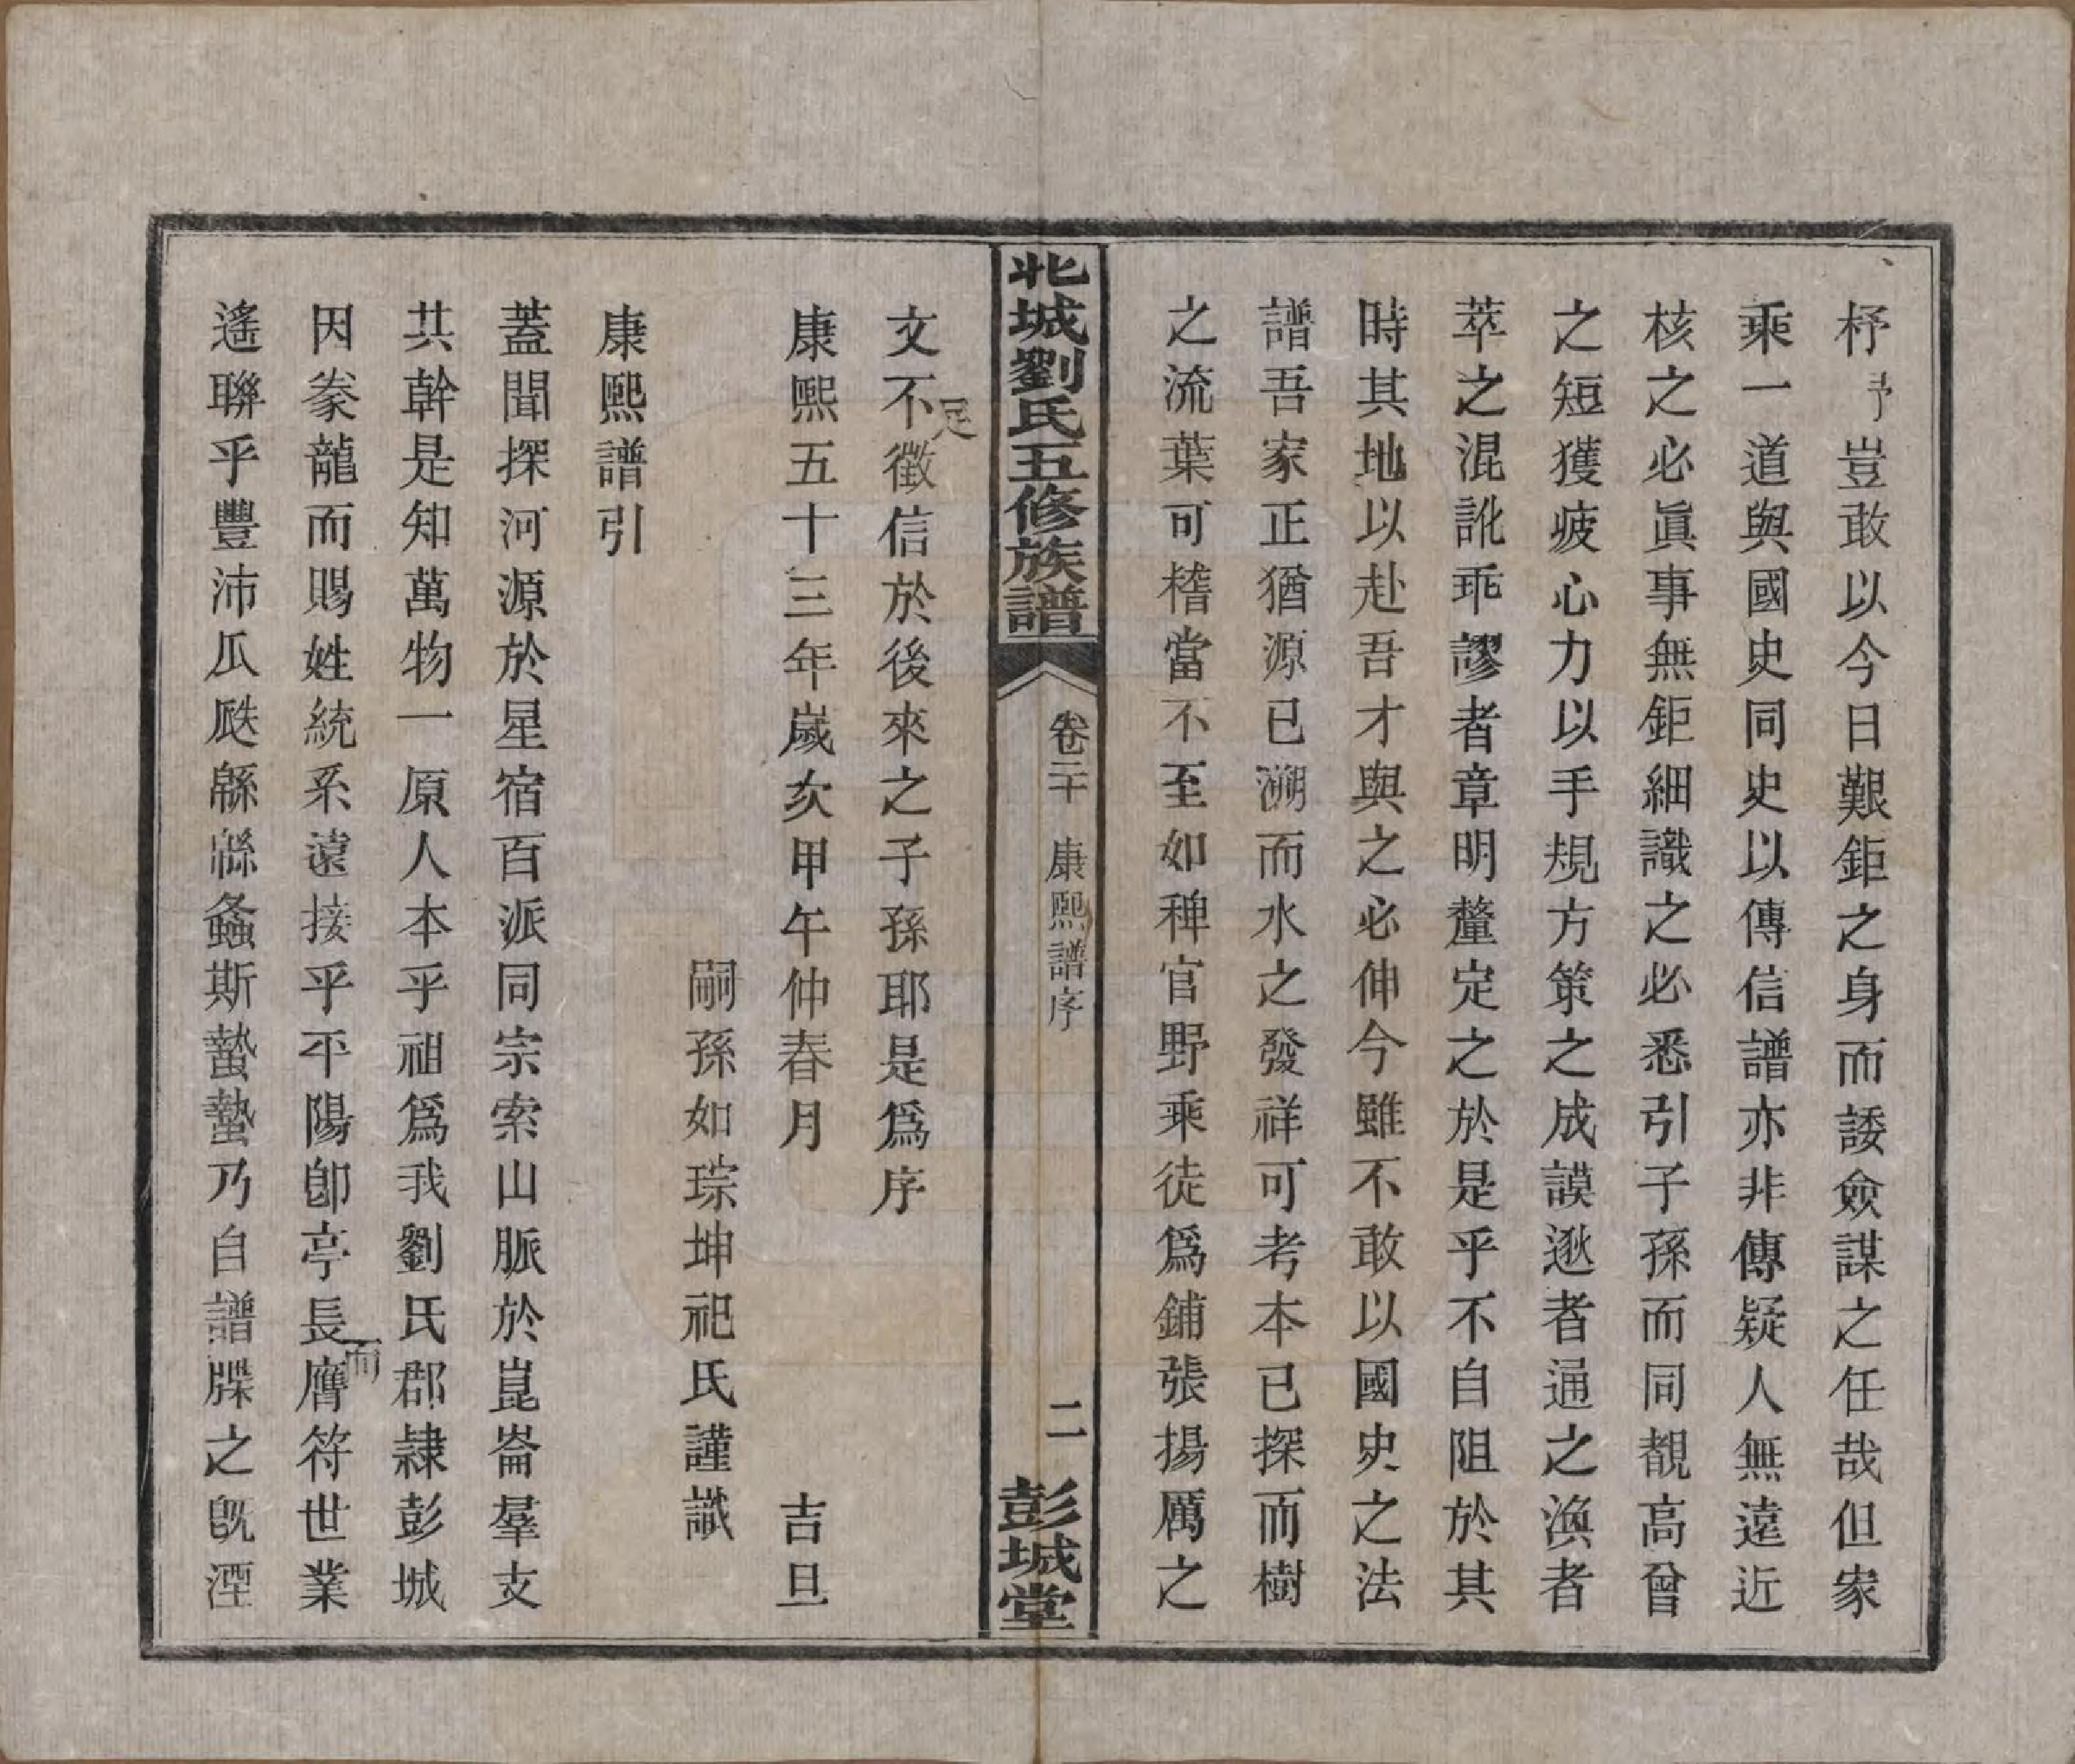 杼予豈敢以今日艱鉅之身而諉僉謀之任哉但家
乘一道與國史同史以傳信譜亦非傳疑人無遠近
核之必眞事無鉅細識之必悉引子孫而同覩高曾
之短獲疲心力以手規方策之成謨逖者通之渙者
萃之混訛乖謬者章明釐定之於是乎不自阻於其
時其地以赴吾才與之必伸今雖不敢以國史之法
譜吾家正猶源已溯而水之發祥可考本已探而樹
之流葉可稽當不至如稗官野乘徒爲鋪張揚厲之
北城劉氏五修族譜
卷二十 康熙譜序
二
彭城堂
文不足徵信於後來之子孫耶是爲序
康熙五十三年歲次甲午仲春月 吉旦
嗣孫如琮坤祀氏謹識
康熙譜引
蓋聞探河源於星宿百派同宗索山脈於崑崙羣支
共幹是知萬物一原人本乎祖爲我劉氏郡隸彭城
因豢龍而賜姓統系遠接乎平陽卽亭長而膺符世業
遙聯乎豐沛瓜瓞緜緜螽斯蟄蟄乃自譜牒之旣湮